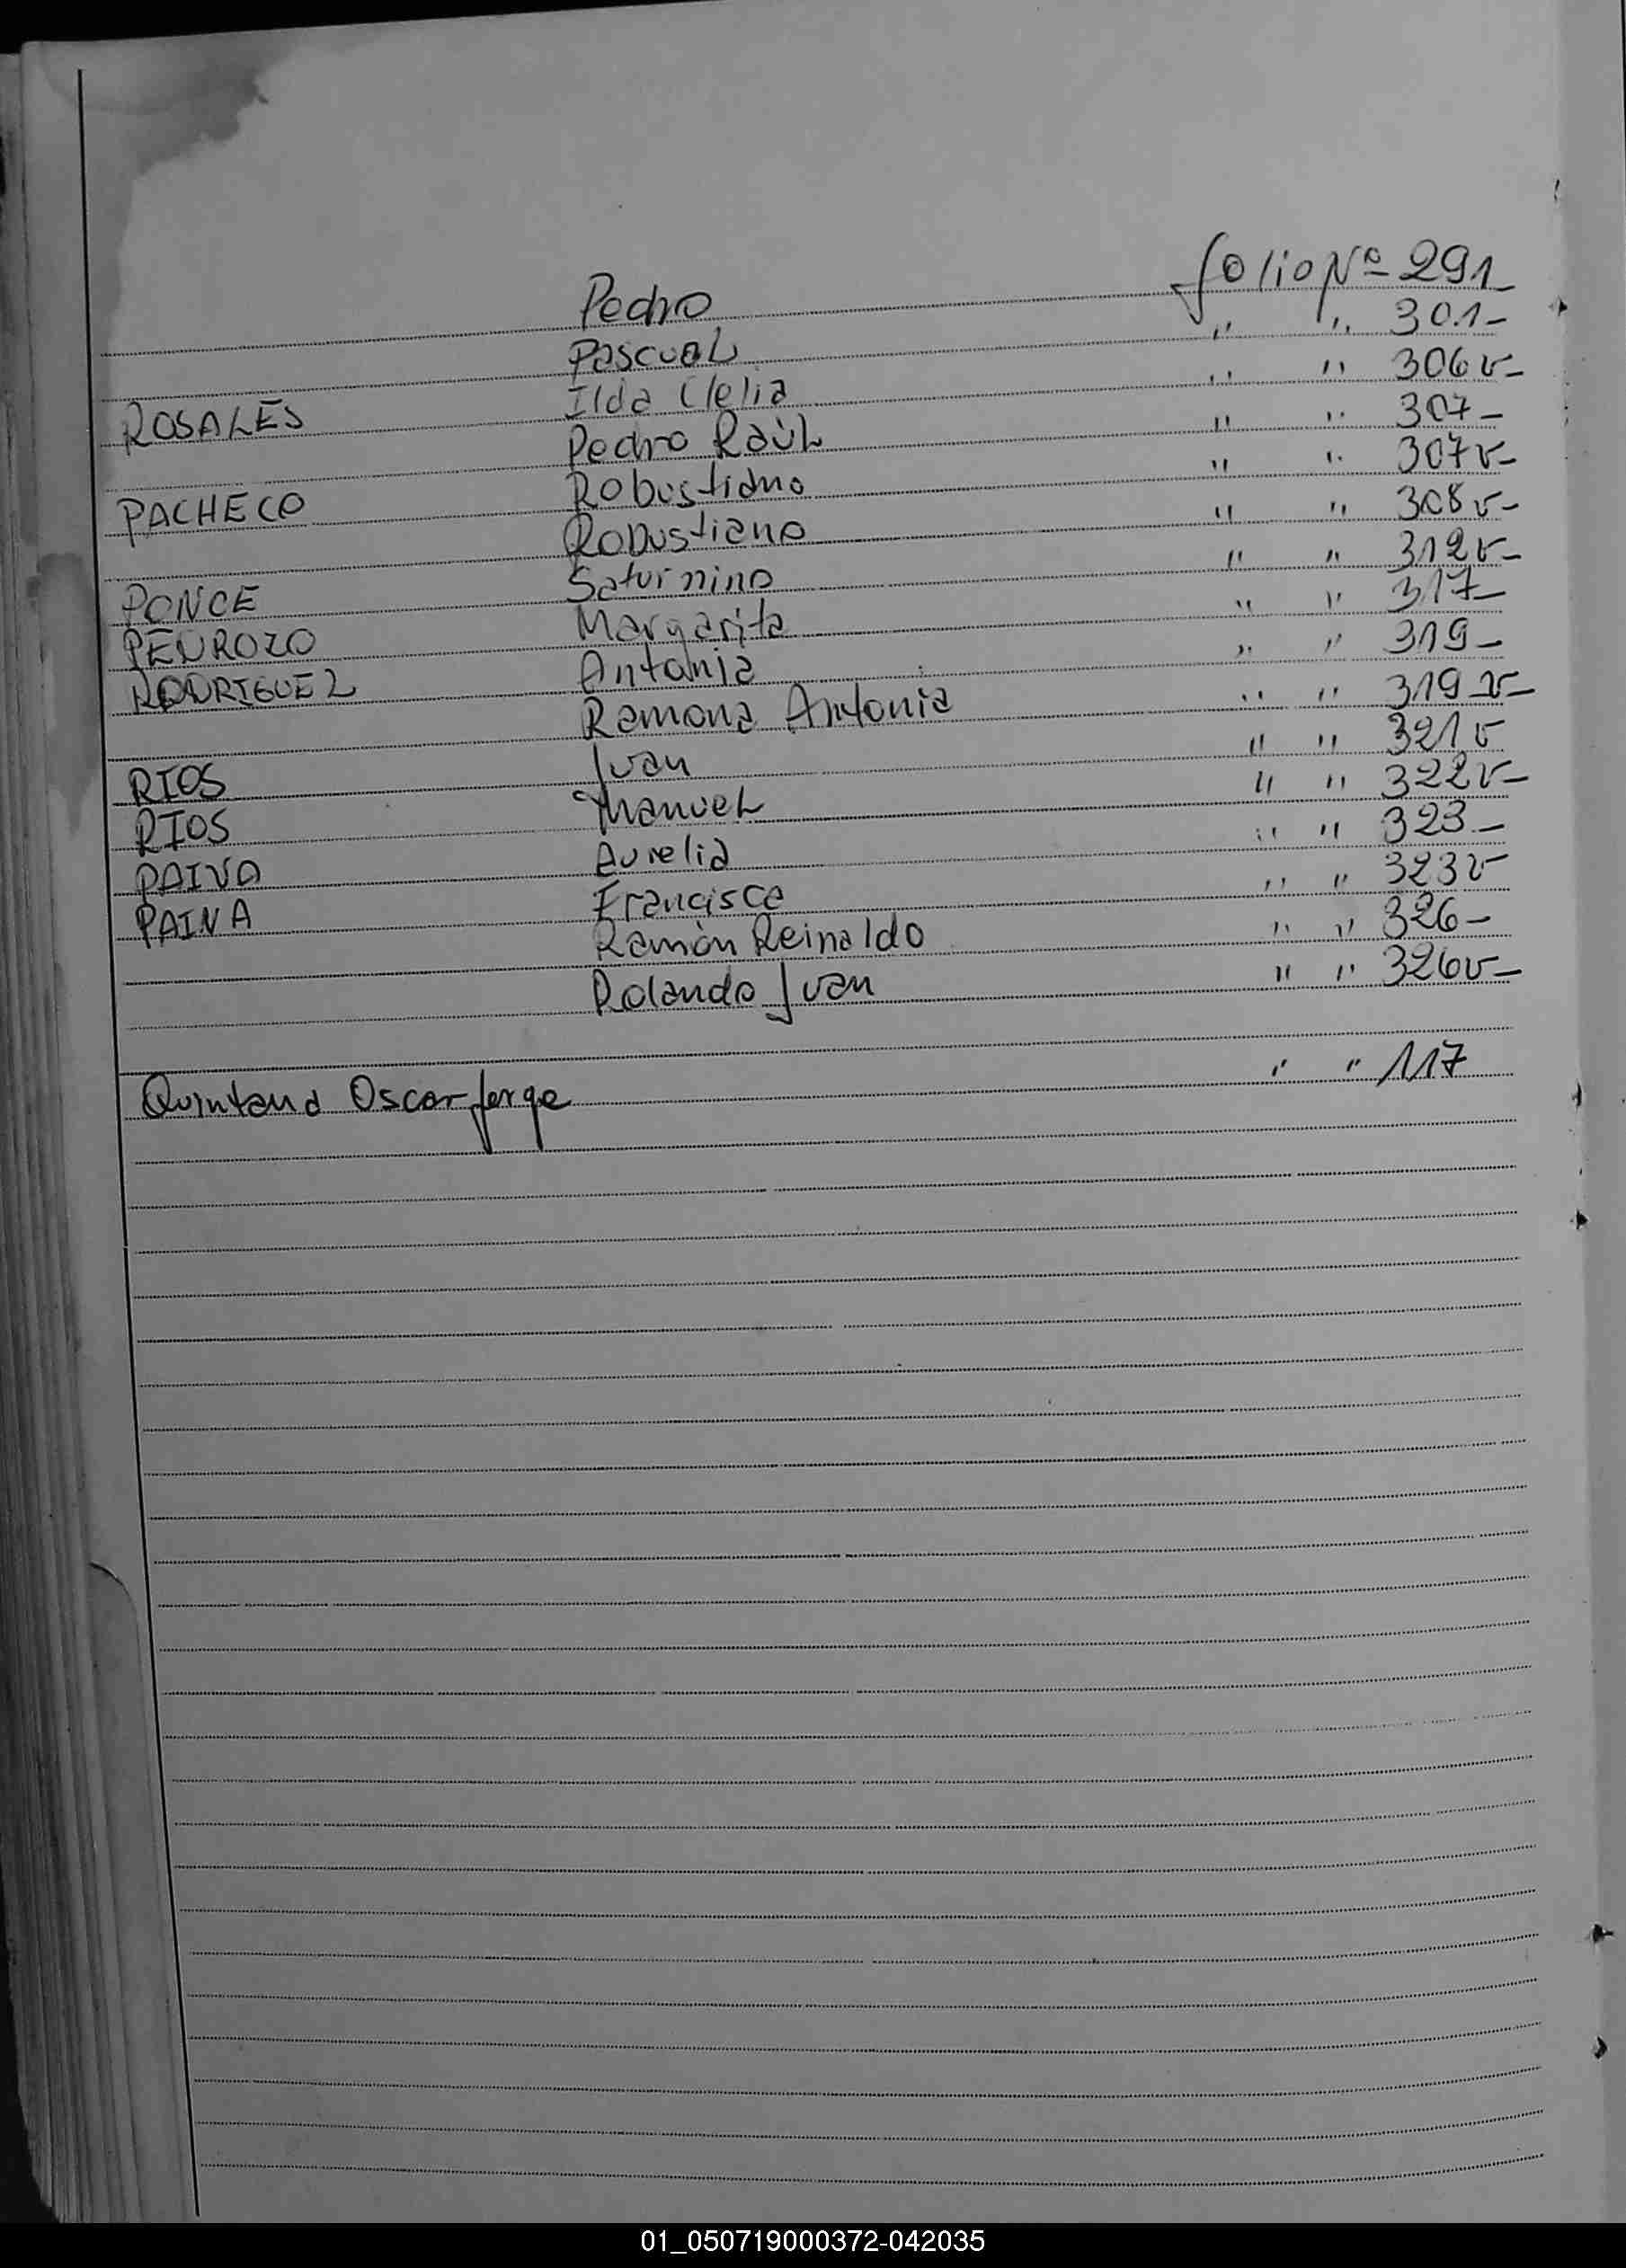 Pedro folio Nº 291
Pascual " " 301-
ROSALES Ilda Clelia " " 306v-
Pedro Raúl " " 307-
PACHECO Robustiano " " 307v-
Robustiano " " 308v-
PONCE Saturnino " " 312v-
PENROZO Margarita " " 317-
RODRIGUEZ Antonia " " 319-
Ramona Antonia " " 319v-
RIOS Juan " " 321v
RIOS Manuel " " 322v-
PAIVA Aurelia " " 323-
PAIVA Francisca " " 323v
Ramón Reinaldo " " 326-
Rolando Juan " " 326v-
Quintana Oscar Jorge " " 117
01_050719000372-042035